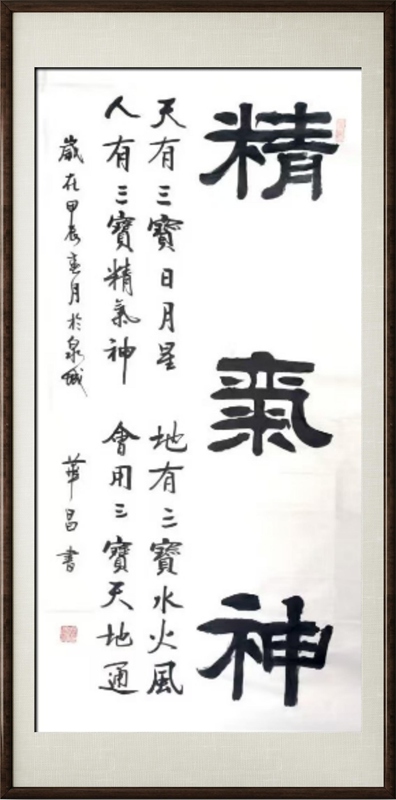 精氣神
天有三寶日月星 地有三寶水火風
人有三寶精氣神 會用三寶天地通
歲在甲辰春月於泉城 華昌書